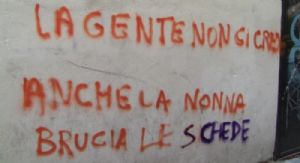 LA GENTE NON CI CREDE
ANCHE LA NONNA
BRUCIA LE SCHEDE